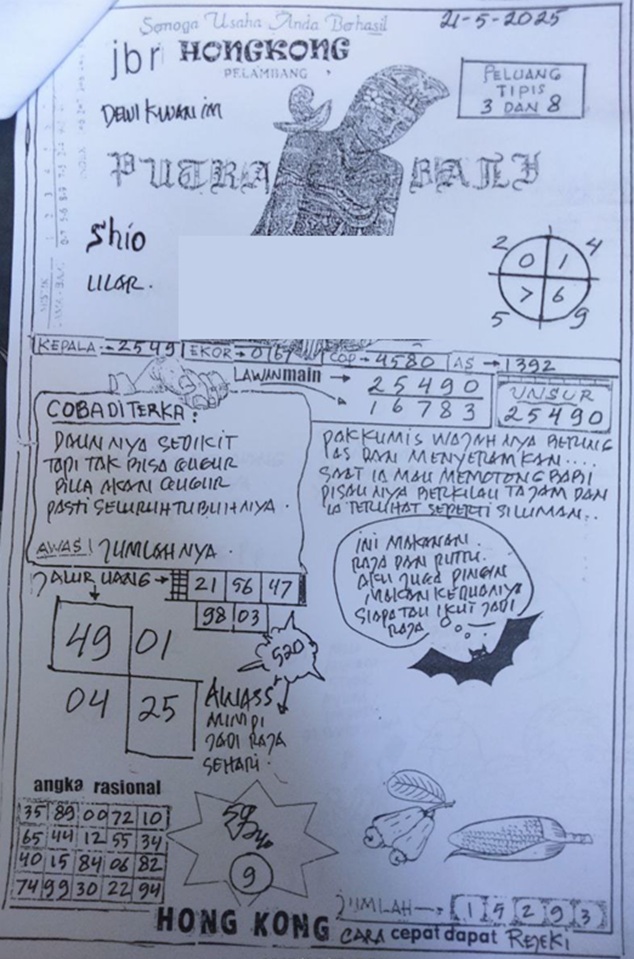 Semoga Usaha Anda Berhasil
21-5-2025
jbr HONGKONG
PELAMBANG
PELUANG
TIPIS
3 DAN 8
DEWI KWAN IM
PUTRA BALI
Shio
ULAR.
2 4
0 1
7 6
5 9
KEPALA → 2549 EKOR → 0167 COP → 4580 AS → 1392
LAWAN main → 25490
16783
UNSUR
25490
COBA DITERKA:
DAUNNYA SEDIKIT
TAPI TAK BISA GUGUR
BILA AKAN GUGUR
PASTI SELURUH TUBUHNYA.
AWAS! JUMLAHNYA.
PAK KUMIS WAJAHNYA BERUNG
AS DAN MENYERAMKAN....
SAAT IA MAU MEMOTONG BABI
PISAUNYA BERKILAU TAJAM DAN
IA TERLIHAT SEPERTI SILUMAN..
INI MAKANAN
RAJA DAN RUTTU.
AKU JUGA PINGIN
MAKAN KEDUANYA
SIAPA TAU IKUT JADI
RAJA
JALUR UANG → 21 56 47
98 03
49 01
04 25
520
AWASS
MIMPI
JADI RAJA
SEHARI.
angka rasional
35 89 00 72 10
65 44 12 55 34
40 15 84 06 82
74 99 30 22 94
9
JUMLAH → 1 5 2 9 3
HONG KONG CARA cepat dapat REJEKI